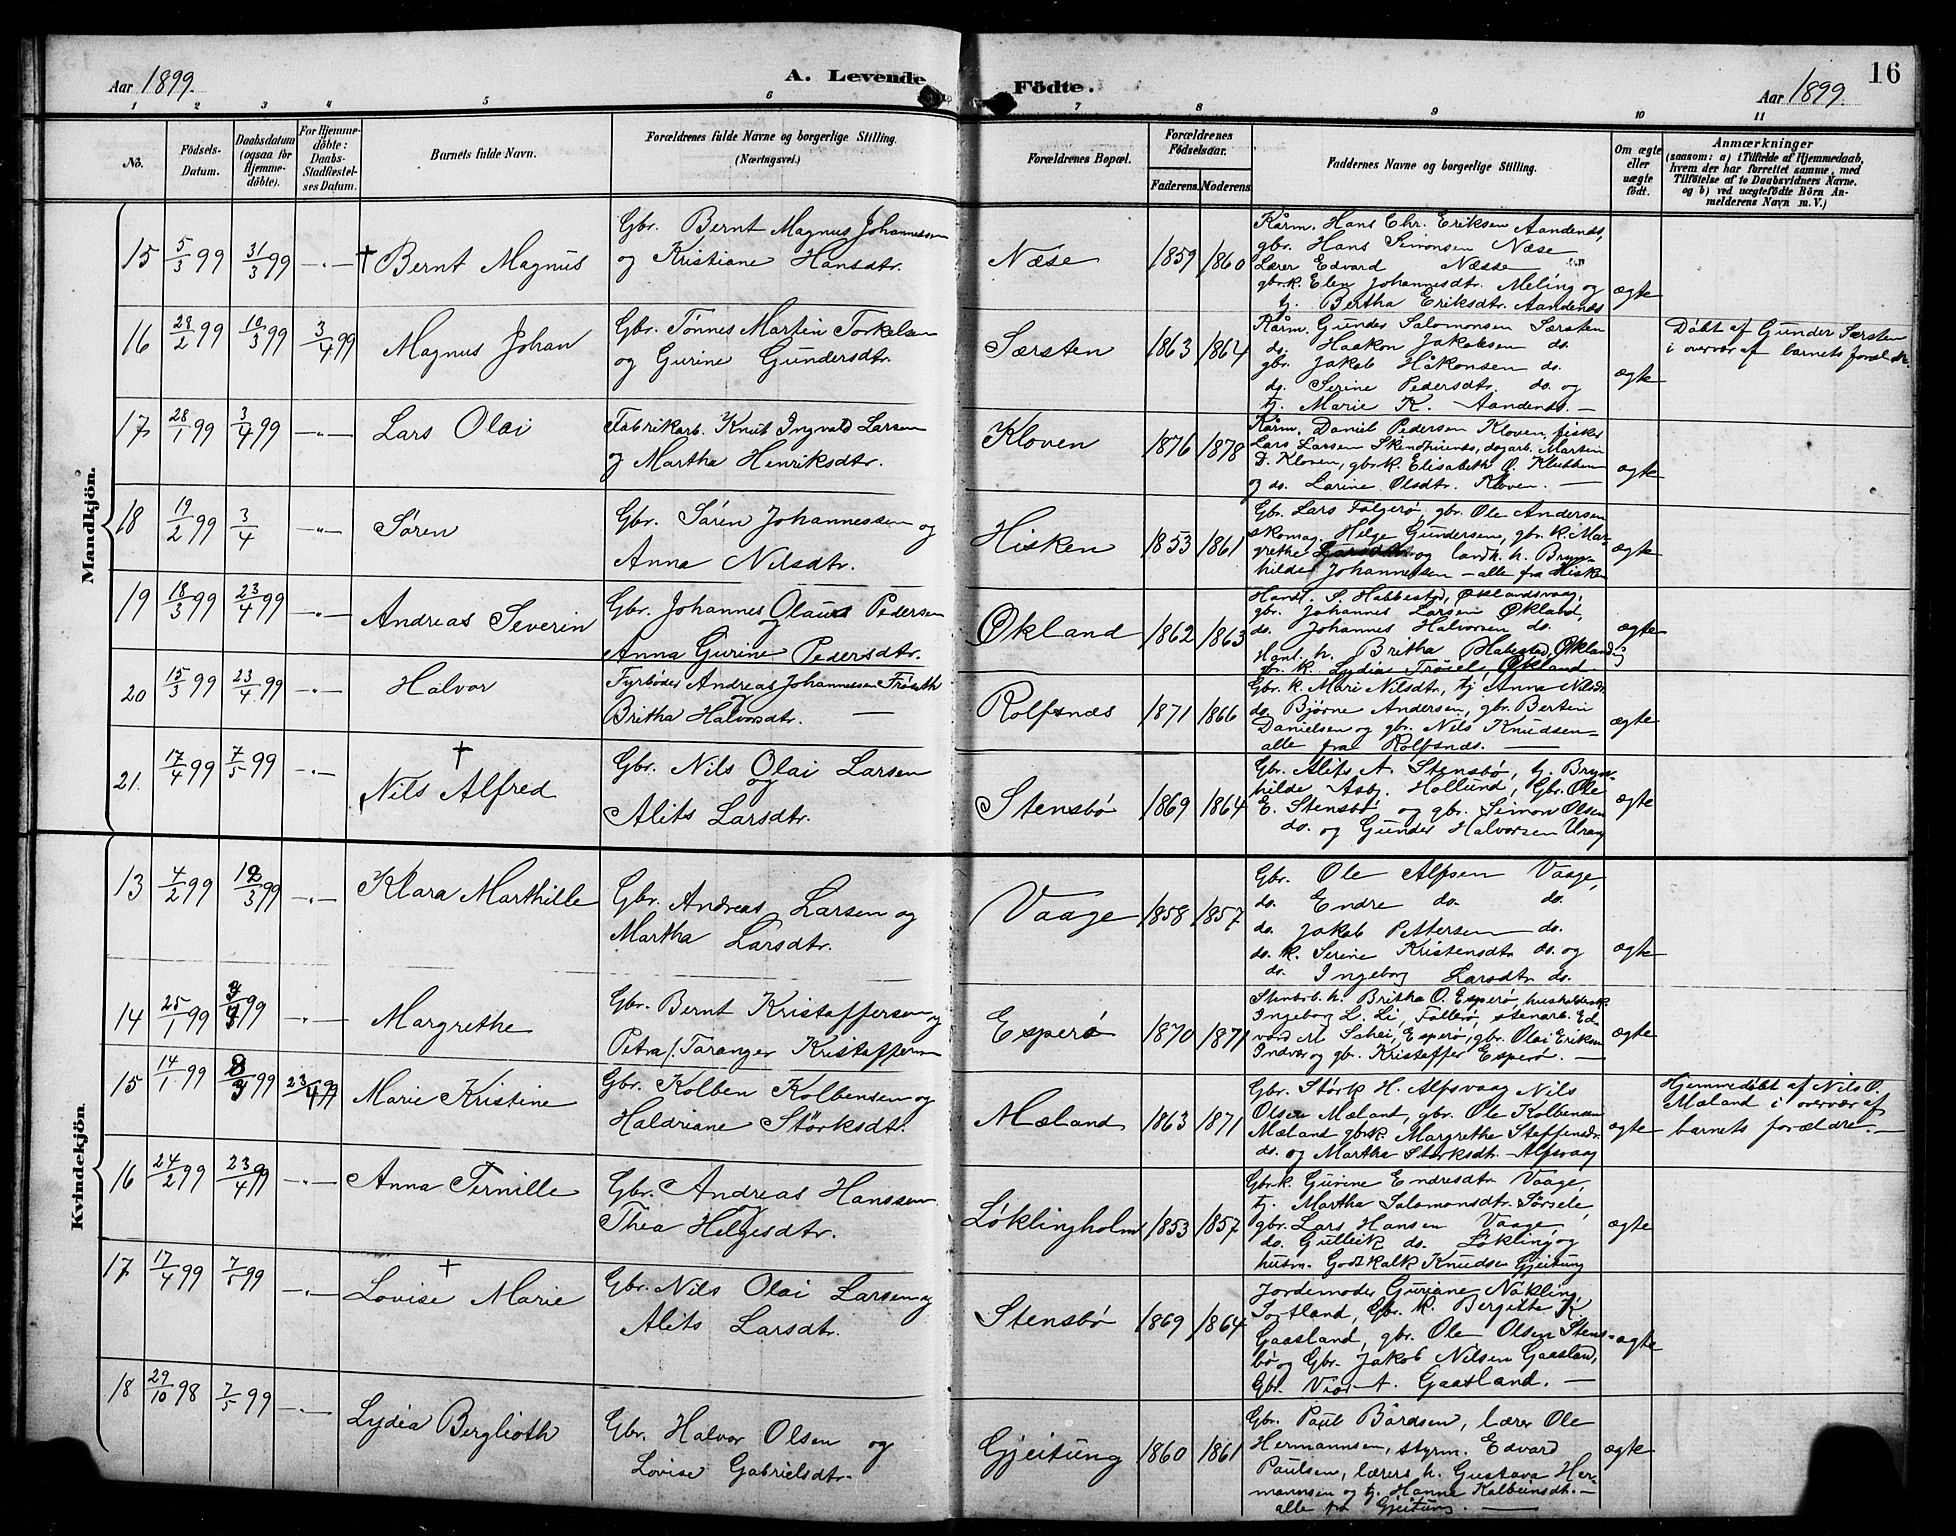 Aar 1899.
A. Levende Födte.
Aar 1899.
16
1 2 3 4 5 6 7 8 9 10 11
No.
Födsels-Datum.
Daabsdatum (ogsaa for Hjemme-döbte).
For Hjemme-döbte: Daabs-Stadfæstel-ses Datum.
Barnets fulde Navn.
Forældrenes fulde Navne og borgerlige Stilling.
(Næringsvei.)
Forældrenes Bopæl.
Forældrenes Födselsaar.
Faderens.
Moderens.
Faddernes Navne og borgerlige Stilling.
Om ægte eller uægte födt.
Anmærkninger
(saasom: a) i Tilfælde af Hjemmedaab,
hvem der har forrettet samme, med
Tilföielse af to Daabsvidners Navne.
og b) ved uægtefödte Börn An-
melderens Navn m. V.)
Mandkjön.
15 5/3 99 31/3 99 -"- † Bernt Magnus
Gbr. Bernt Magnus Johannessen
og Kristiane Hansdtr.
Næse 1859 1860
Kårm. Hans Chr. Eriksen Aandenes,
gbr. Hans Simonsen Næse
Lærer Edvard Næsse
gbr.k. Elen Johannesdtr. Meling og
tj. Bertha Eriksdtr. Aandenes
ægte
16 28/2 99 10/3 99 3/4 99 Magnus Johan
Gbr. Tönnes Martin Torkelsen
og Gurine Gundersdtr.
Særsten 1863 1864
Kårm. Gunder Salomonsen Særsten
do. Haakon Jakobsen do.
gbr. Jakob Håkonsen do.
do. Serine Pedersdtr. do. og
tj. Marie K. Aandenes. —
ægte
Döbt af Gunder Særsten
i overvær af barnets foræld
17 28/1 99 3/4 99 -"- Lars Olai
Fabrikarb. Knut Ingvald Larsen
og Martha Henriksdtr.
Kloven 1876 1878
Kårm. Daniel Pedersen Kloven, fisker
Lars Larsen, dagarb. Martin
D. Kloven, gbr.k. Elisabeth O.
og do. Larine Olsdtr. Kloven. —
ægte
18 19/2 99 3/4 -"- Sören
Gbr. Sören Johannessen og
Anna Nilsdtr.
Hisken 1853 1861
Gbr. Lars Folgerö, gbr. Ole Andersen
skomag. Helge Gundersen, gbr. k. Mar-
grethe og landh. h. Bryn-
hilde Johannessen — alle fra Hisken
ægte
19 18/3 99 23/4 99 -"- Andreas Severin
Gbr. Johannes Olaus Pedersen
og
Anna Gurine Pedersdtr.
Økland 1862 1863
Handl. S. Habbestad, Øklandsvaag,
gbr. Johannes Larsen Økland,
do. Johannes Halvorsen do.
Hand. h. Britha Habestad, Økland og
gbr. k. Lydia Økland
ægte
20 15/3 99 23/4 99 -"- Halvor
Fyrböder Andreas Johannessen
og
Britha Halvorsdtr. —
Rolfsnæs 1871 1866
Gbr. k. Mari Nilsdtr, tj Anna Nilsdr
do. Bjørne Andersen, gbr. Bertin
Danielsen og gbr. Nils Knudsen —
alle fra Rolfsnæs. —
ægte
21. 17/4 99 7/5 99 -"- † Nils Alfred
Gbr. Nils Olai Larsen
og
Alits Larsdtr.
Stensbö 1869 1864
Gbr. Alits A. Stensbö, tj. Bryn-
hilde Asbj. Hollund, Gbr. Ole
E. Stensbö og gbr. Simon Olsen
do. og Gunder Halvorsen Urang
ægte
Kvindekjön.
13 4/2 99 12/3 99 -"- Klara Marthille
Gbr. Andreas Larsen og
Martha Larsdtr.
Vaage 1858 1857
Gbr. Ole Alfsen Vaage,
do. Endre do. do.
do. Jakob Pettersen do.
do. k. Serine Kristensdtr do. og
do. Ingeborg Larsdtr do.
ægte
14 25/1 99 99 -"- Margrethe
Gbr. Bernt Kristoffersen og
Petra f. Taranger Kristoffersen
Esperö 1870 1871
Stensb. h. Britha O. Esperö, husholdersk
Ingeborg L. Li, Fallerö, stenarb. Ed-
vard M Schei, Esperö, gbr. Olai Eriksen
Indvær og gbr. Kristoffer Esperö. —
ægte
15 14/1 99 8/3 99 23/4 99 Marie Kristine
Gbr. Kolben Kolbensen og
Haldriane Störksdtr.
Mæland 1863 1871
Gbr. Störk H. Alfsvaag Nils
Olsen Mæland, gbr. Ole Kolbensen
Mæland gbr.k. Margrethe Steffensdr.
do. og Martha Störksdtr. Alfsvaag
ægte
Hjemmedöbt af Nils O.
Mæland i overvær af
barnets forældre. —
16 24/2 99 23/4 99 -"- Anna Pernille
Gbr. Andreas Hanssen
og
Thea Helgesdtr.
Løklingholm 1853 1857
Gbr.k. Gurine Endresdtr Vaage
tj. Martha Salomonsdtr. Sörsele,
gbr. Lars Hansen Vaage,
do. Gulleik do. Lökling og
husm. Godtkalk Knudsen Gjeitung
ægte
17 17/4 99 7/5 99 -"- † Lovise Marie
Gbr. Nils Olai Larsen og
Alits Larsdtr.
Stensbö 1869 1864
Jordemoder Guriane Nökling,
Sortland, Gbr. k. Bergitte K
Gaasland, gbr. Ole Olsen Stens-
bö og Gbr. Jakob Nilsen Gaasland,
Gbr. A. Gaasland. —
ægte
18 29/10 98 7/5 99 -"- Lydia Berglioth
Gbr. Halvor Olsen og
Lovise Gabrielsdtr.
Gjeitung 1860 1861
Gbr. Paul Bårdsen, lærer Ole
Hermannsen, styrm. Edvard
Paulsen, lærers h. Gustava Her-
mannsen og tj. Hanne Kolbeinsdt. —
alle fra Gjeitung. —
ægte